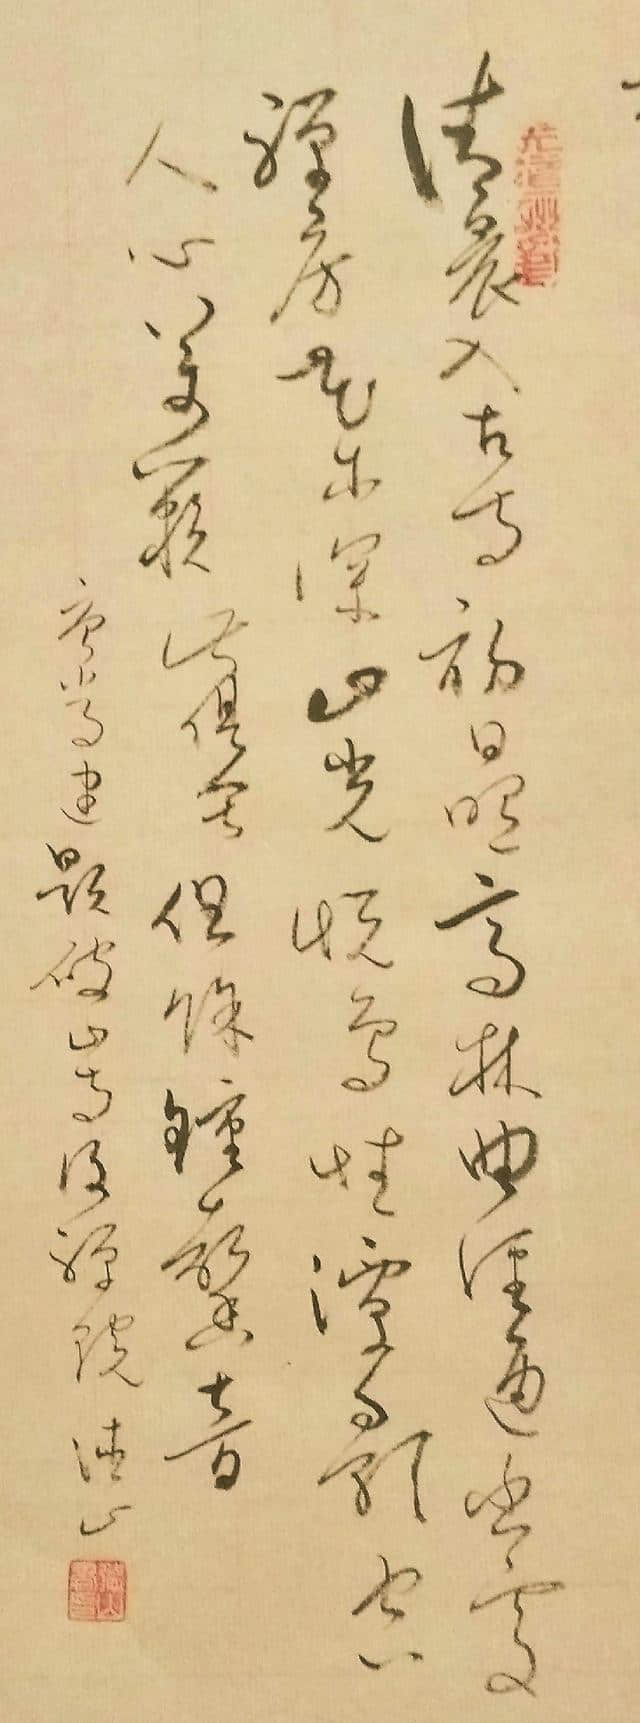 清晨入古寺初日照高林曲徑通幽處
禪房花木深山光悅鳥性潭影空
人心萬籟此俱寂但餘鐘磬音
唐常建題破山寺後禪院 山